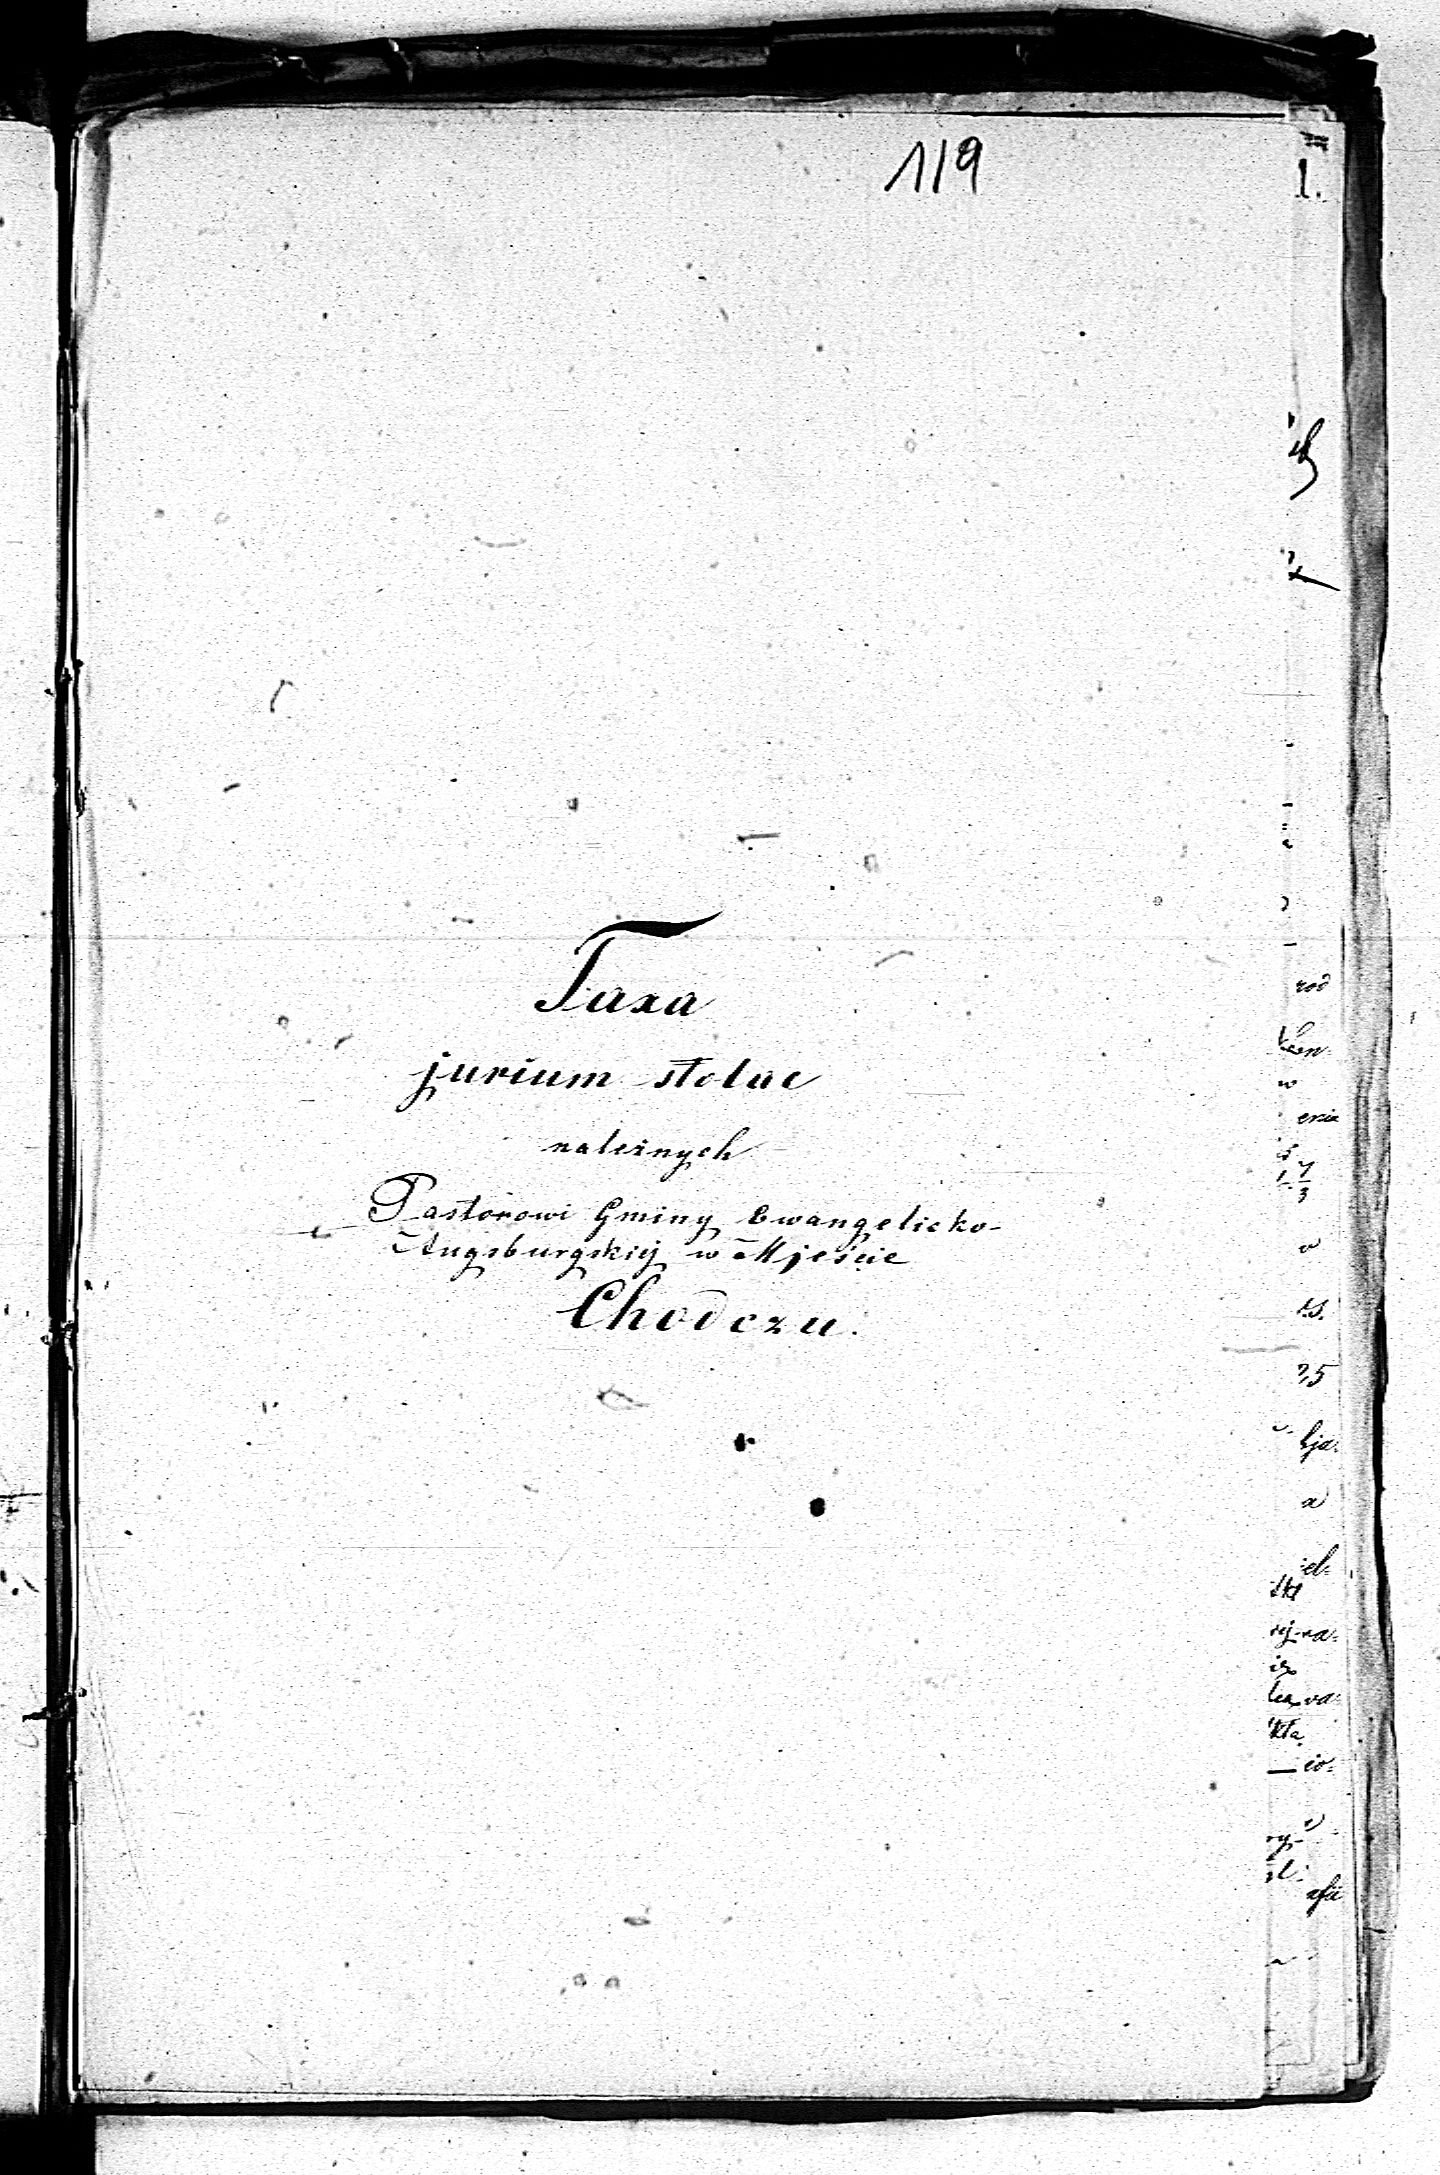 119
1.
Taxa
jurium stolae
należnych
Pastorowi Gminy Ewangelicko-
Augsburgskiéj w Mjeście
Chodczu.